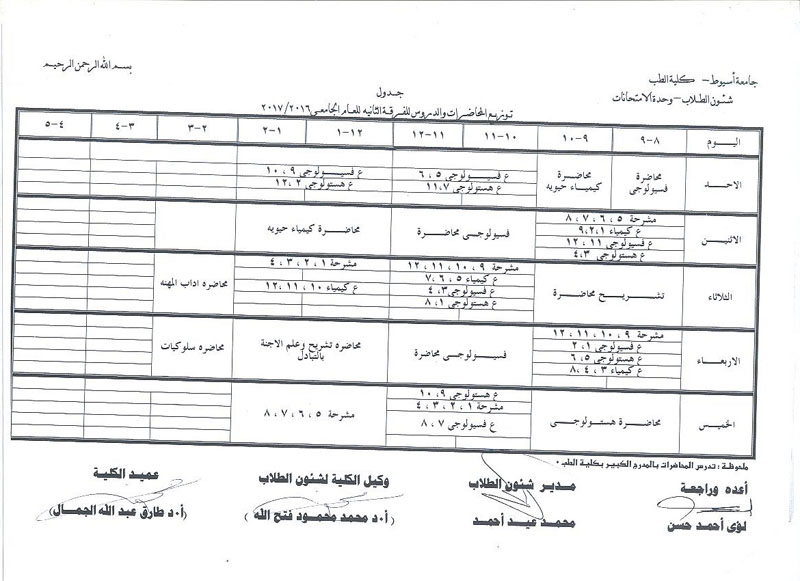 بسم الله الرحمن الرحيم
جامعة أسيوط – كلية الطب
شئون الطلاب – وحدة الامتحانات
جدول
توزيع المحاضرات والدروس للفرقة الثانيه للعام الجامعى ٢٠١٧/٢٠١٦
اليوم ٨-٩ ٩-١٠ ١٠-١١ ١١-١٢ ١٢-١ ١-٢ ٢-٣ ٣-٤ ٤-٥
الاحد
محاضرة فسيولوجى
محاضرة كيمياء حيويه
ع فسيولوجى ٥ ، ٦
ع هستولوجى ١١،٧
ع فسيولوجى ٩ ، ١٠
ع هستولوجى ١٢،٢
الاثنين
مشرحة ٥ ، ٦ ، ٧ ، ٨
ع كيمياء ٩،٢،١
ع فسيولوجى ١١ ، ١٢
ع هستولوجى ٤،٣
فسيولوجى محاضرة
محاضرة كيمياء حيويه
الثلاثاء
تشريح محاضرة
مشرحة ٩ ، ١٠ ، ١١ ، ١٢
ع كيمياء ٥ ، ٧،٦
ع فسيولوجى ٤،٣
ع هستولوجى ١ ، ٨
مشرحة ١ ، ٢ ، ٣ ، ٤
ع كيمياء ١٠ ، ١١ ، ١٢
محاضره اداب المهنه
الاربعاء
مشرحة ٩ ، ١٠ ، ١١ ، ١٢
ع فسيولوجى ٢،١
ع هستولوجى ٦،٥
ع كيمياء ٣ ، ٤ ، ٨
فسيولوجى محاضرة
محاضره تشريح وعلم الاجنة
بالتبادل
محاضره سلوكيات
الخميس
محاضرة هستولوجى
ع هستولوجى ٩ ، ١٠
مشرحة ١ ، ٢ ، ٣ ، ٤
ع فسيولوجى ٧ ، ٨
مشرحة ٥ ، ٦ ، ٧ ، ٨
ملحوظة : تدرس المحاضرات بالمدرج الكبير بكلية الطب .
أعده وراجعة
لؤى أحمد حسن
مدير شئون الطلاب
محمد عيد أحمد
وكيل الكلية لشئون الطلاب
(أ.د محمد محمود فتح الله)
عميد الكلية
(أ.د طارق عبد الله الجمال)